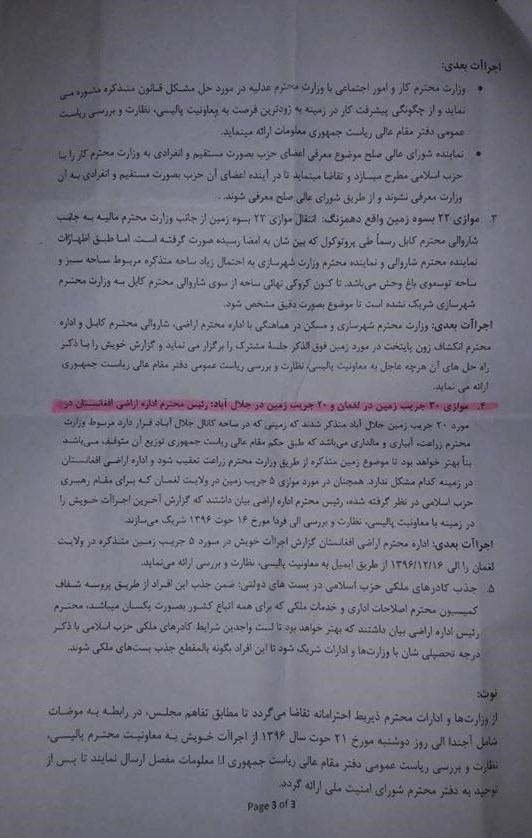 اجراآت بعدی:
• وزارت محترم کار و امور اجتماعی با وزارت محترم عدلیه در مورد حل مشکل قانون متذکره مشوره می
نماید و از چگونگی پیشرفت کار در زمینه به زودترین فرصت به معاونیت پالیسی، نظارت و بررسی ریاست
عمومی دفتر مقام عالی ریاست جمهوری معلومات ارائه مینماید.
• نماینده شورای عالی صلح موضوع معرفی اعضای حزب بصورت مستقیم و انفرادی به وزارت محترم کار را با
حزب اسلامی مطرح میسازد و تقاضا مینماید تا در آینده اعضای آن حزب بصورت مستقیم و انفرادی به آن
وزارت معرفی نشوند و از طریق شورای عالی صلح معرفی شوند. .
۳. موازی ۲۲ بسوه زمین واقع دهمزنگ: انتقال موازی ۲۲ بسوه زمین از جانب وزارت محترم مالیه به جانب
شاروالی محترم کابل رسماً طی پروتوکول که بین شان به امضا رسیده صورت گرفته است. اما طبق اظهارات
نماینده محترم شاروالی و نماینده محترم وزارت شهرسازی به احتمال زیاد ساحه متذکره مربوط ساحه سبز و
ساحه توسعوی باغ وحش می‌باشد. تا کنون کروکی نهائی ساحه از سوی شاروالی محترم کابل به وزارت محترم
شهرسازی شریک نشده است تا موضوع بصورت دقیق مشخص شود.
اجراآت بعدی: وزارت محترم شهرسازی و مسکن در هماهنگی با اداره محترم اراضی، شاروالی محترم کابل و اداره
محترم انکشاف زون پایتخت در مورد زمین فوق الذکر جلسۀ مشترک را برگزار می نماید و گزارش خویش را با ذکر
راه حل های آن هرچه عاجل به معاونیت پالیسی، نظارت و بررسی ریاست عمومی دفتر مقام عالی ریاست جمهوری
ارائه می نماید.
۴. موازی ۳۰ جریب زمین در لغمان و ۲۰ جریب زمین در جلال آباد: رئیس محترم اداره اراضی افغانستان در
مورد ۲۰ جریب زمین جلال آباد متذکر شدند که زمینی که در ساحه کانال جلال آباد قرار دارد مربوط وزارت
محترم زراعت، آبیاری و مالداری می‌باشد که طبق حکم مقام عالی ریاست جمهوری توزیع آن متوقف می‌باشد
بناً بهتر خواهد بود تا موضوع زمین متذکره از طریق وزارت محترم زراعت تعقیب شود و اداره اراضی افغانستان
در زمینه کدام مشکل ندارد. همچنان در مورد موازی ۵ جریب زمین در ولایت لغمان که برای مقام رهبری
حزب اسلامی در نظر گرفته شده، رئیس محترم اداره اراضی بیان داشتند که گزارش آخرین اجراآت خویش را
در زمینه با معاونیت پالیسی، نظارت و بررسی الی فردا مورخ ۱۶ حوت ۱۳۹۶ شریک می‌سازند.
اجراآت بعدی: اداره محترم اراضی افغانستان گزارش اجراآت خویش در مورد ۵ جریب زمین متذکره در ولایت
لغمان را الی ۱۳۹۶/۱۲/۱۶ از طریق ایمیل به معاونیت پالیسی، نظارت و بررسی ارائه می‌نماید.
۵. جذب کادرهای ملکی حزب اسلامی در بست های دولتی: ضمن جذب این افراد از طریق پروسه شفاف
کمیسیون محترم اصلاحات اداری و خدمات ملکی که برای همه اتباع کشور بصورت یکسان میباشد، محترم
رئیس اداره اراضی بیان داشتند که بهتر خواهد بود تا لست واجدین شرایط کادرهای ملکی حزب اسلامی با ذکر
درجه تحصیلی شان با وزارت‌ها و ادارات شریک شود تا این افراد بگونه بالمقطع جذب بست‌های ملکی شوند.
نوت:
از وزارت‌ها و ادارات محترم ذیربط احترامانه تقاضا می‌گردد تا مطابق تفاهم مجلس، در رابطه به موضات
شامل آجندا الی روز دوشنبه مورخ ۲۱ حوت سال ۱۳۹۶ از اجراآت خویش به معاونیت محترم پالیسی،
نظارت و بررسی ریاست عمومی دفتر مقام عالی ریاست جمهوری معلومات مفصل ارسال نمایند تا پس از
توحید به دفتر محترم شورای امنیت ملی ارائه گردد.
Page 3 of 3